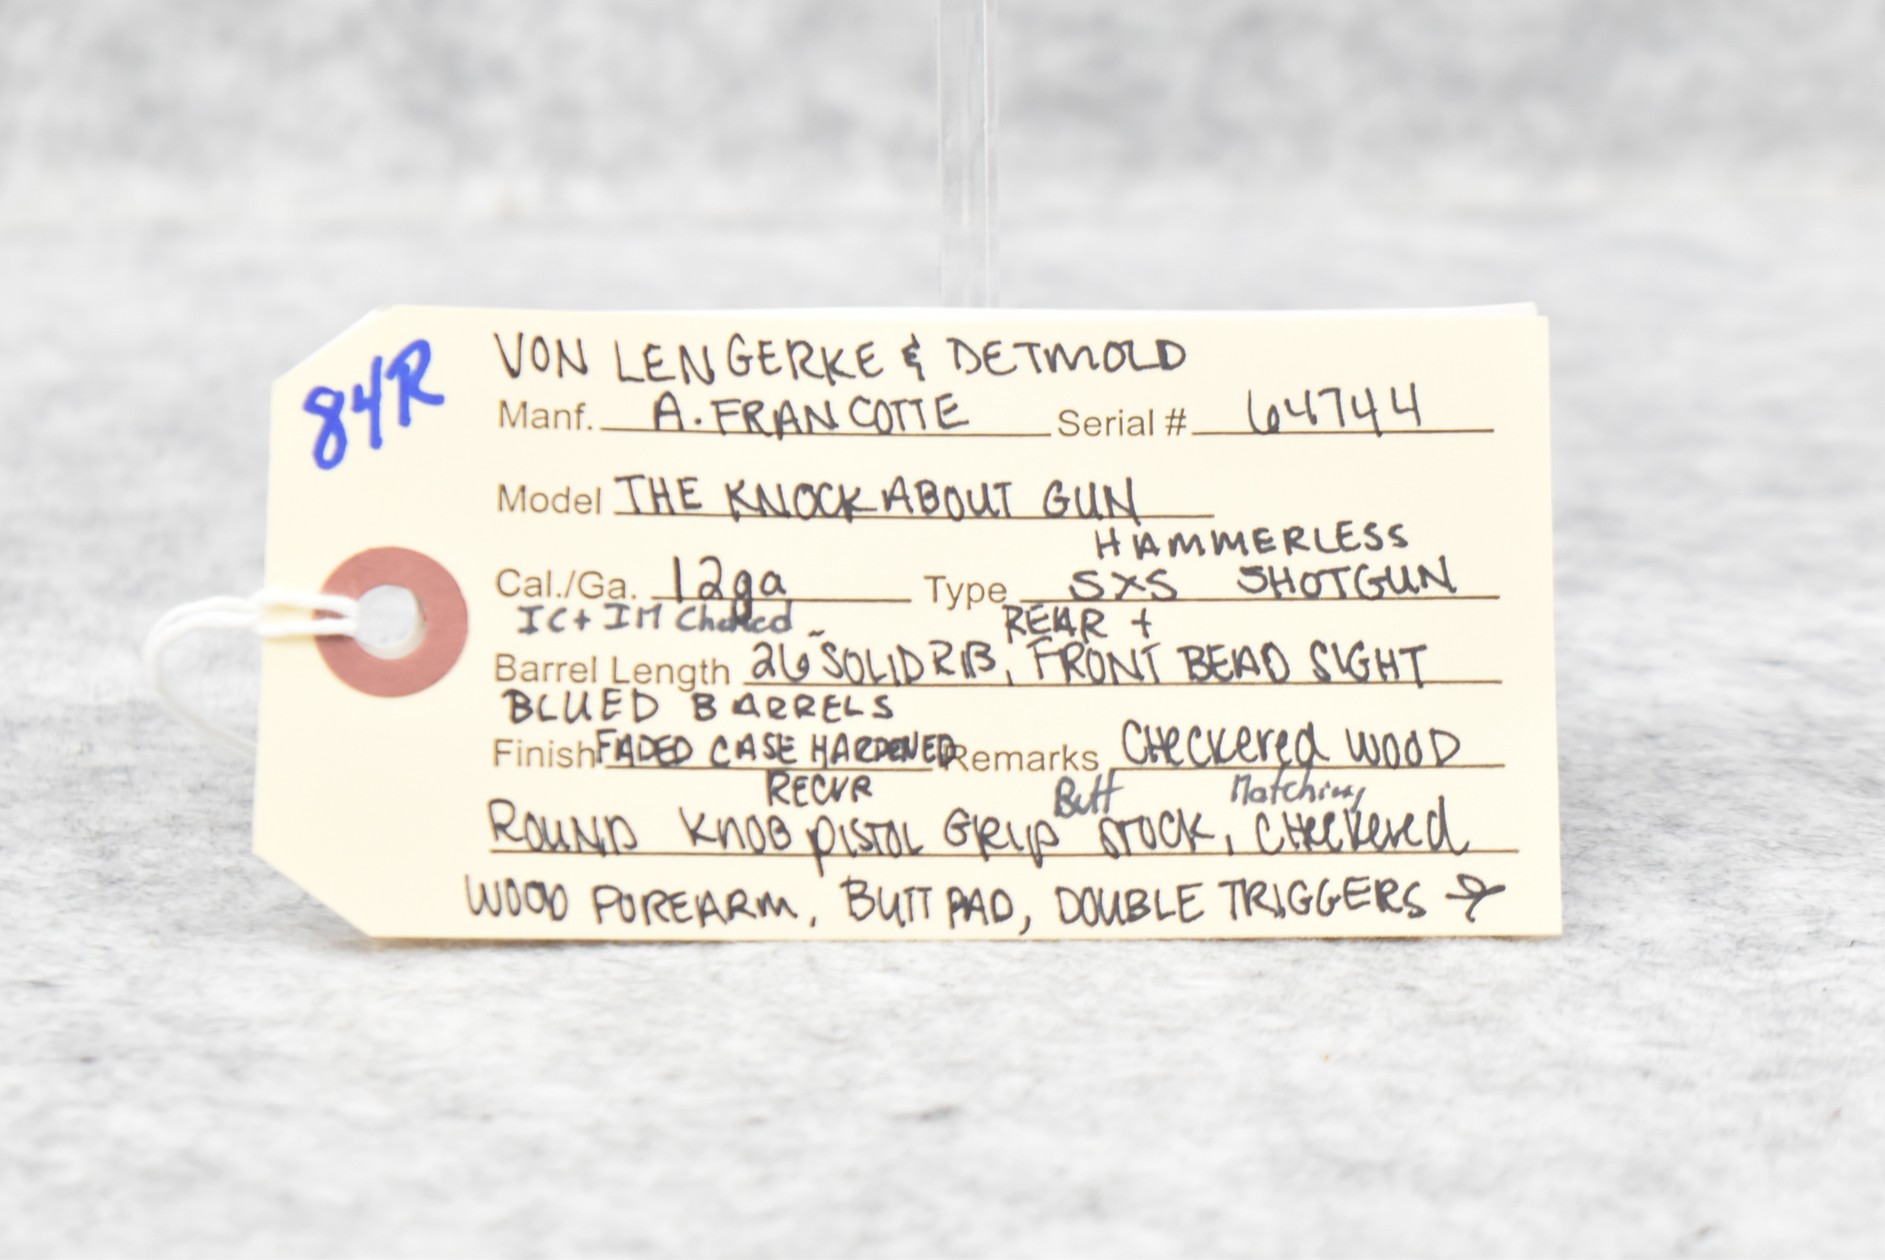 84R
VON LENGERKE & DETMOLD
Manf. A. FRANCOTTE Serial # 64744
Model THE KNOCKABOUT GUN
HAMMERLESS
Cal./Ga. 12ga Type SXS SHOTGUN
IC + IM Choked REAR +
Barrel Length 26" SOLID RIB, FRONT BEAD SIGHT
BLUED BARRELS
Finish FADED CASE HARDENED Remarks CHECKERED WOOD
RECVR Butt Matching
ROUND KNOB PISTOL GRIP STOCK, CHECKERED
WOOD FOREARM, BUTT PAD, DOUBLE TRIGGERS